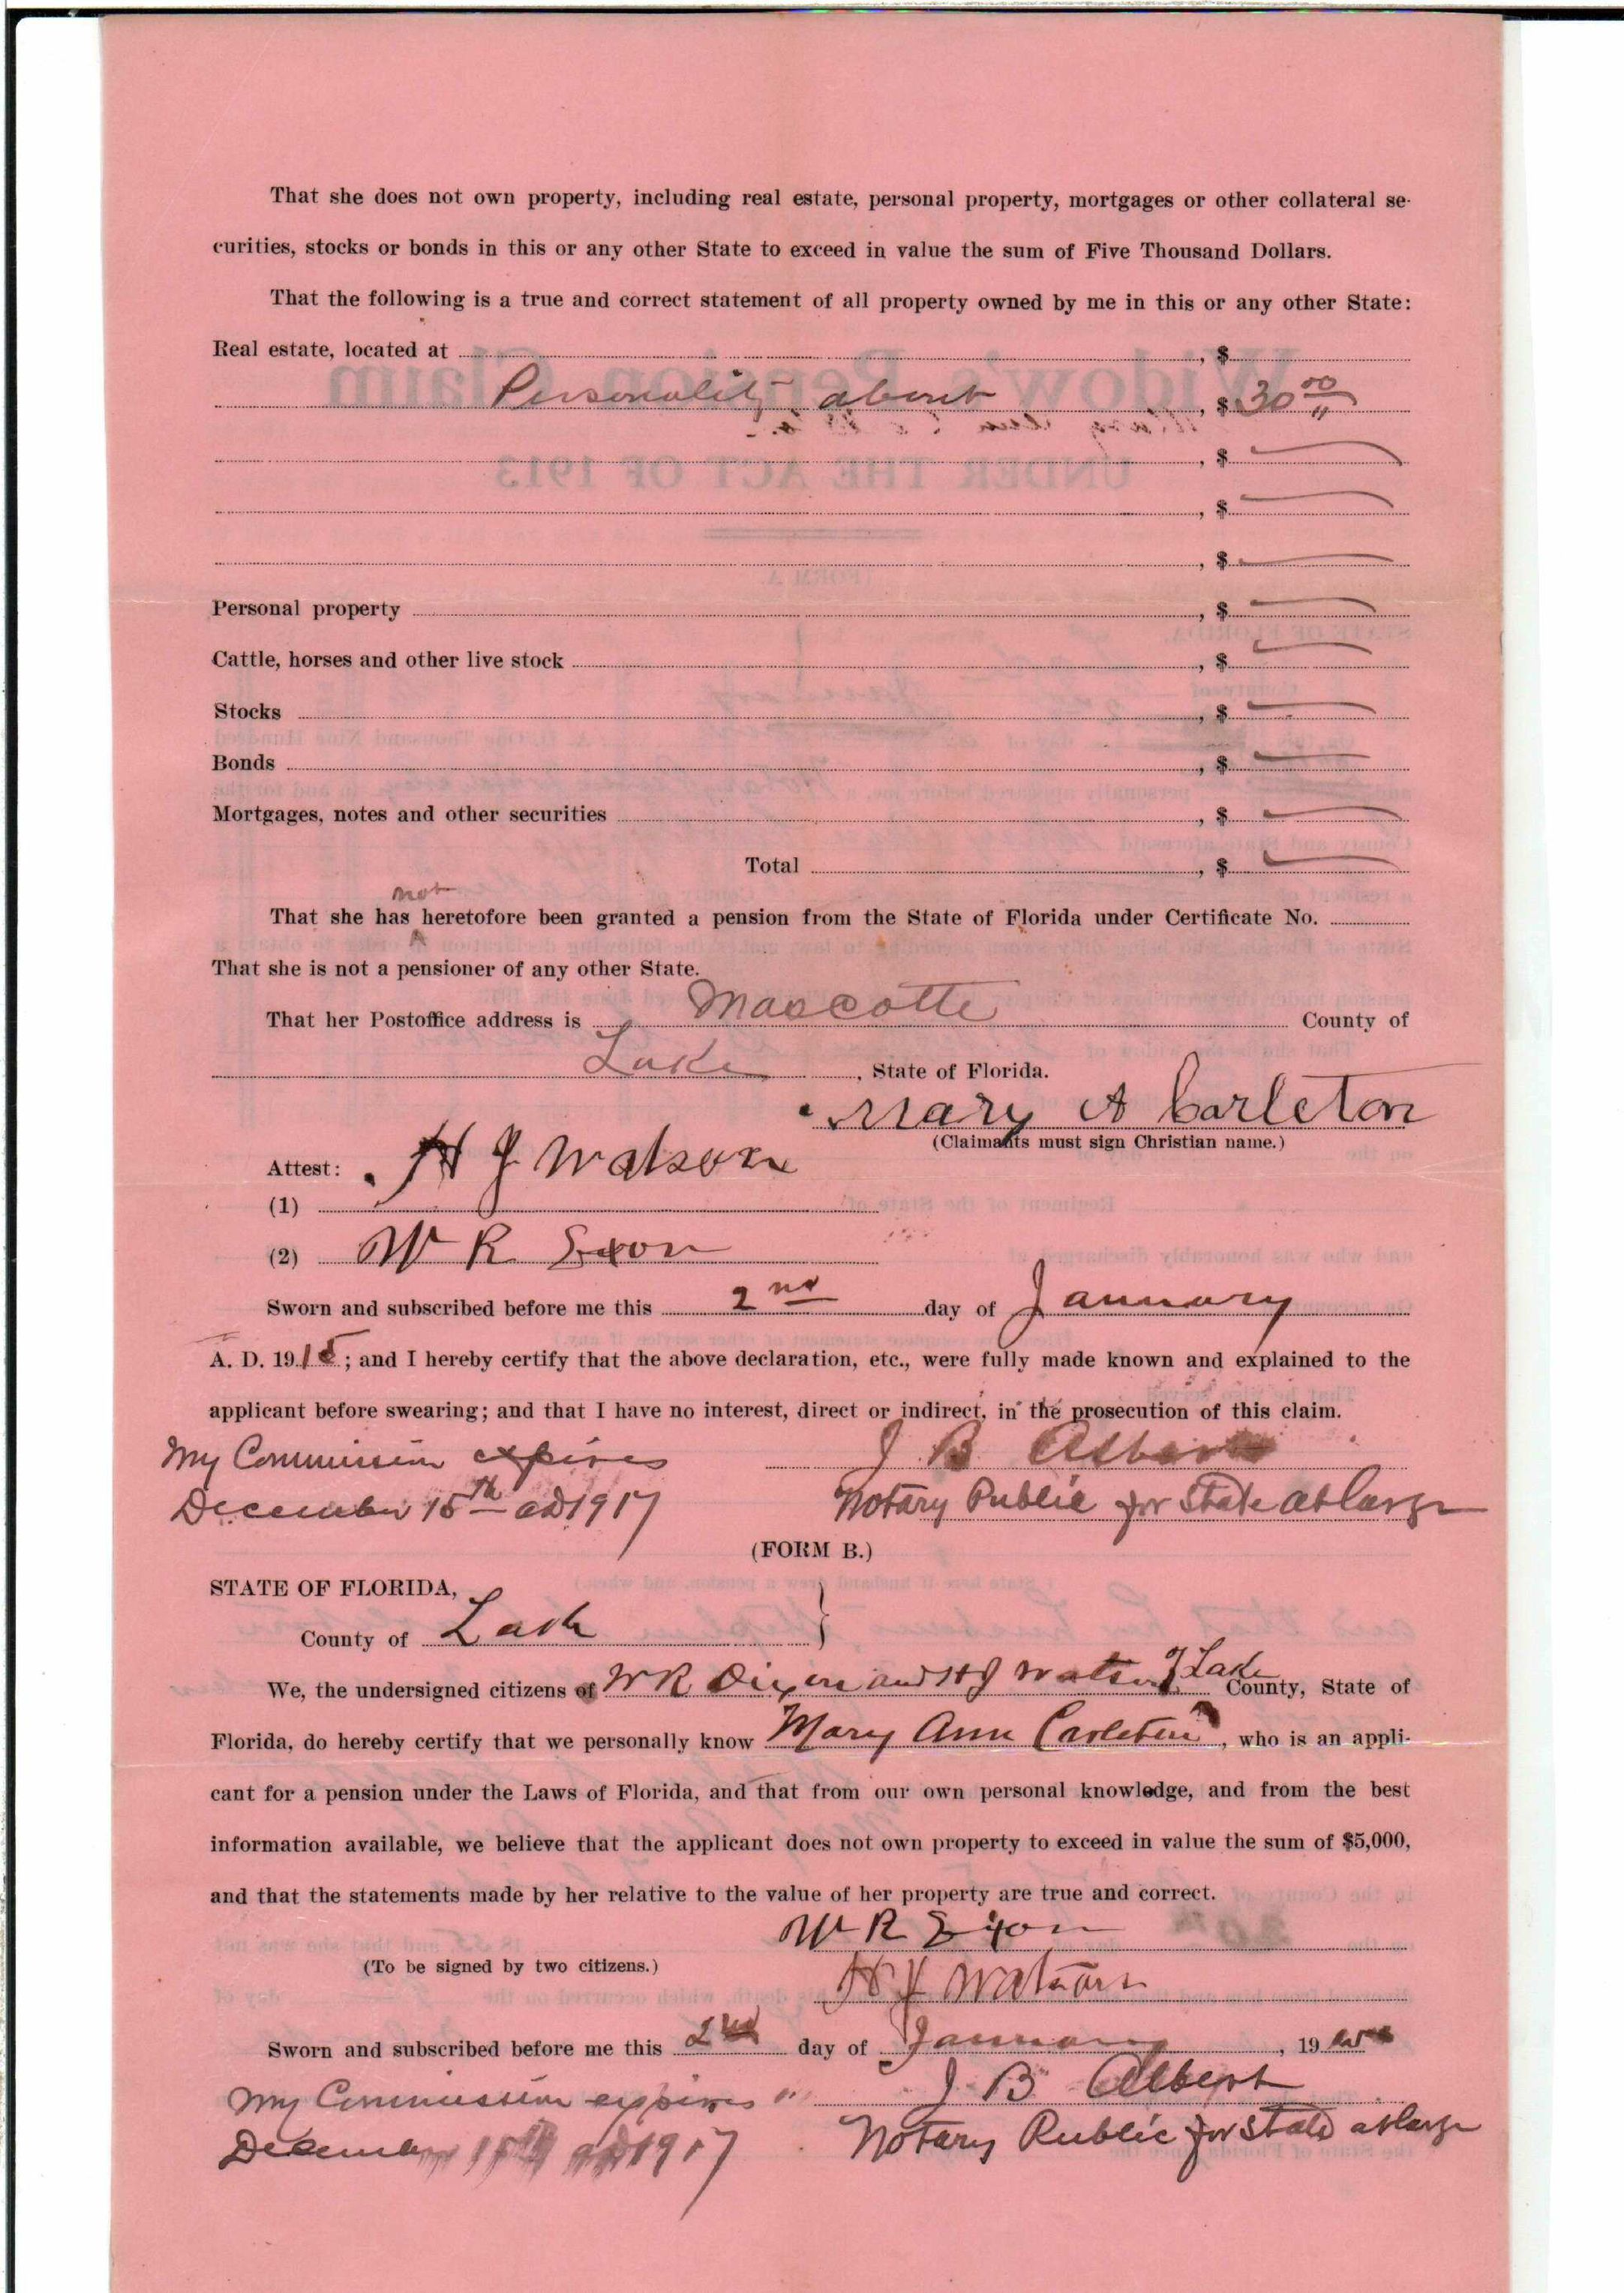 That she does not own property, including real estate, personal property, mortgages or other collateral se-
curities, stocks or bonds in this or any other State to exceed in value the sum of Five Thousand Dollars.
That the following is a true and correct statement of all property owned by me in this or any other State:
Real estate, located at , $
Personality about , $ 30 00
, $
, $
, $
Personal property , $
Cattle, horses and other live stock , $
Stocks , $
Bonds , $
Mortgages, notes and other securities , $
Total , $
not
That she has heretofore been granted a pension from the State of Florida under Certificate No.
That she is not a pensioner of any other State.
That her Postoffice address is Mascotte County of
Lake , State of Florida.
Mary A Carleton
(Claimants must sign Christian name.)
Attest: H J Watson
(1)
(2) W R Dixon
Sworn and subscribed before me this 2nd day of January
A. D. 1915; and I hereby certify that the above declaration, etc., were fully made known and explained to the
applicant before swearing; and that I have no interest, direct or indirect, in the prosecution of this claim.
My Commission expires J B Albert
December 15th AD 1917 Notary Public for State at Large
(FORM B.)
STATE OF FLORIDA,
County of Lake }
We, the undersigned citizens of W R Dixon and H J Watson of Lake County, State of
Florida, do hereby certify that we personally know Mary Ann Carleton, who is an appli-
cant for a pension under the Laws of Florida, and that from our own personal knowledge, and from the best
information available, we believe that the applicant does not own property to exceed in value the sum of $5,000,
and that the statements made by her relative to the value of her property are true and correct.
W R Dixon
(To be signed by two citizens.)
H J Watson
Sworn and subscribed before me this 2nd day of January, 19
My Commission expires J B Albert
December 15th AD 1917 Notary Public for State at Large